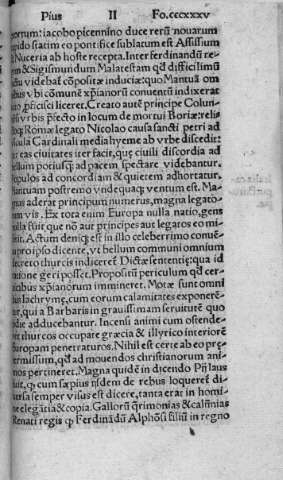 Pius II Fo.cccxxxv
orum: iacobo picennino duce rerũ nouarum
pido statim eo pontifice sublatum est Assisium
Nuceria ab hoste recepta. Inter ferdinandũ re-
m & Sigismundum Malatestam qd̃ difficilimũ
dũ videbat cõpositæ induciæ: quo Mantuã om
ibus v bi cõmune xp̃ianorũ conuentũ indixerat
to p̃ficisci liceret, Creato autẽ principe Coluni
s vrbis p̃fecto in locum de mortui Boriæ: reli
cq̃ Romæ legato Nicolao causa sancti petri ad
icula Cardinali media hyeme ab vrbe discedit:
r eas ciuitates iter facit, quę ciuili discordia ad
ellum potiusq̃ ad pacem spectare videbantur.
populos ad concordiam & quietem adhortatur.
Mantuam postremo vndequaq; ventum est. Ma-
nus aderat principum numerus, magna legato-
um vis. Ex tota enim Europa nulla natio, gens
ulla fuit que nõ aut principes aut legatos eo mi-
it. Actum deniq; est in illo celeberrimo conuẽ-
u pro ipso dicente, vt bellum communi omnium
ecreto thurcis indiceret̃ Dictæ sententię: qua id
atione geri posset. Propositũ periculum qd̃ cer-
icibus xp̃ianorum immineret. Motæ sunt omni
us lachrymę, cum eorum calamitates exponerẽ-
ur, qui a Barbaris in grauissimam seruitutẽ quo
die adducebantur. Incensi animi cum ostende-
et thurcos occupare græcia & illyrico interiorẽ
Europam penetraturos. Nihil est certe ab eo prę
ermissum, qd̃ ad mouendos christianorum ani-
nos pertineret. Magna quidẽ in dicendo Pij laus
uit, q; cum sæpius ijsdem de rebus loqueret̃ di-
uersa semper visus est dicere, tanta erat in homi-
ne elegãtia & copia. Gallorũ q̃rimonias & calũnias
Renati regis q; Ferdinãdũ Alphõsi filiũ in regno